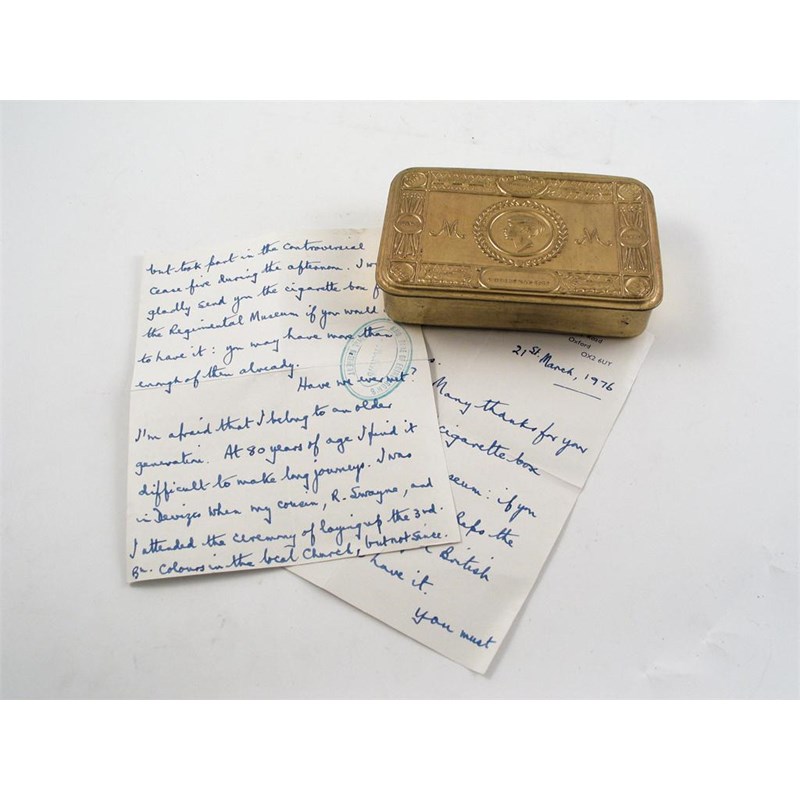 but took part in the controversial
cease fire during the afternoon. I
gladly send you the cigarette box
the Regimental Museum if you would
to have it: you may have more than
enough of them already.
Have we ever met?
I'm afraid that I belong to an older
generation. At 80 years of age I find it
difficult to make long journeys. I was
in Devizes when my cousin, R. Swayne, and
I attended the ceremony of laying up the 3rd.
Bn. Colours in the local Church, but not since.
M
M
Oxford
OX2 6UT
21st. March, 1976
Many thanks for your
cigarette box
if you
the
British
have it.
You must